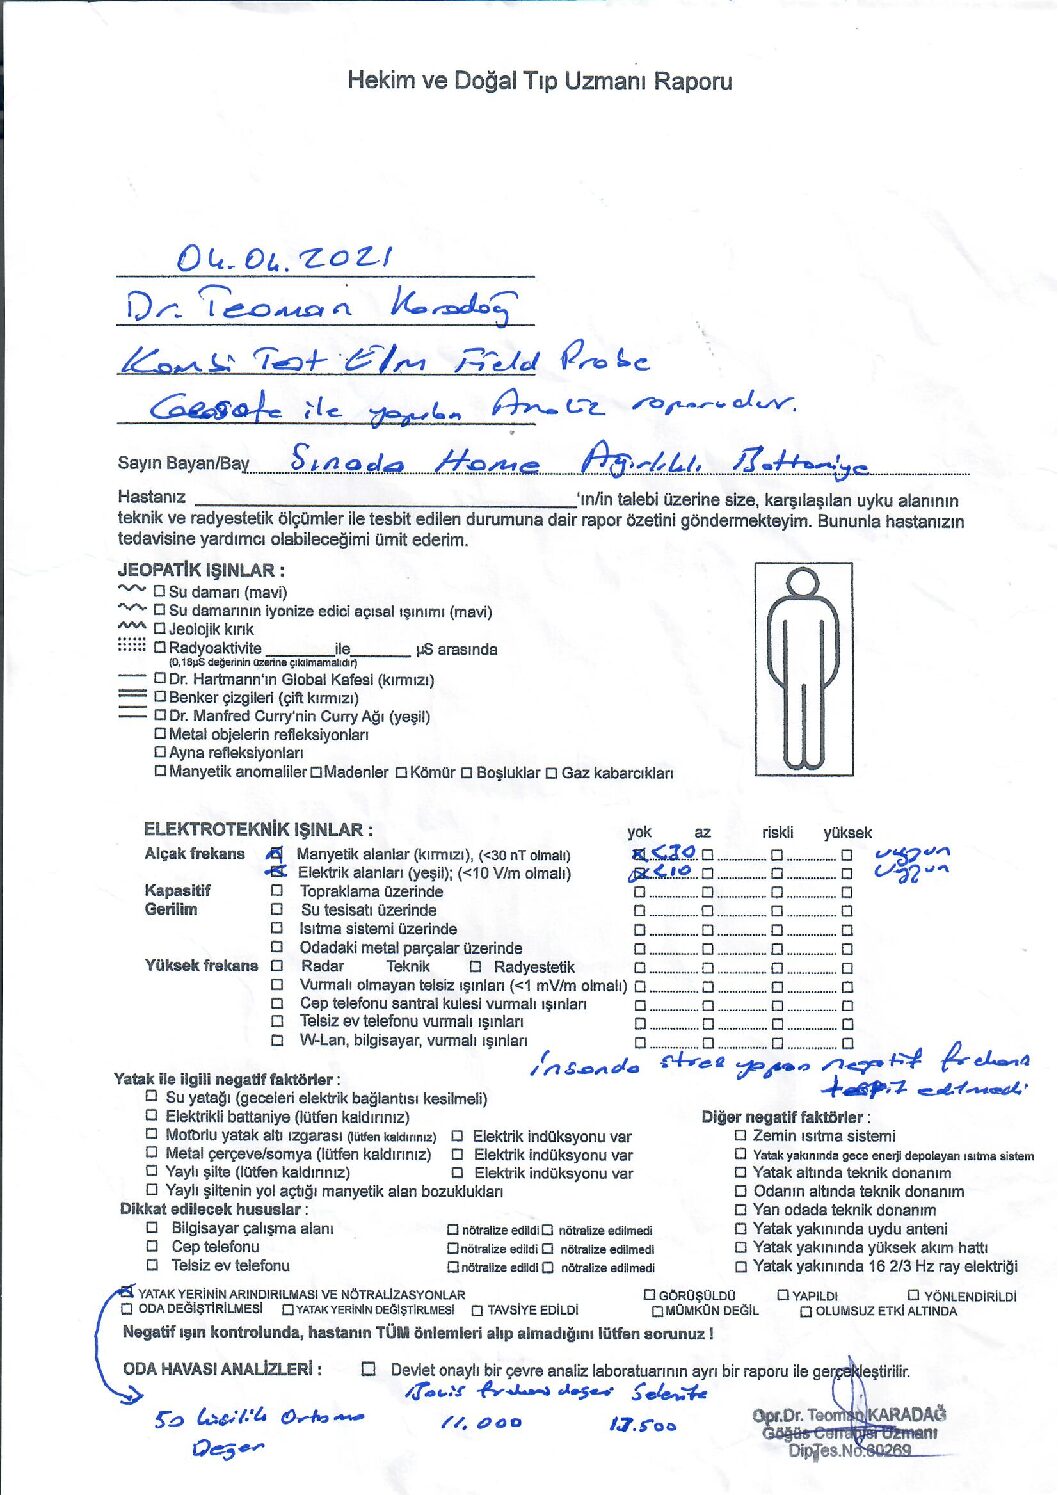 Hekim ve Doğal Tıp Uzmanı Raporu
04.04.2021
Dr. Teoman Karadağ
Kombi Test E/m Field Probe
ile yapılan Analiz raporudur.
Sayın Bayan/Bay Sınada Home Ağırlıklı Battaniye
Hastanız ______ 'ın/in talebi üzerine size, karşılaşılan uyku alanının
teknik ve radyestetik ölçümler ile tesbit edilen durumuna dair rapor özetini göndermekteyim. Bununla hastanızın
tedavisine yardımcı olabileceğimi ümit ederim.
JEOPATİK IŞINLAR :
Su damarı (mavi)
Su damarının iyonize edici açısal ışınımı (mavi)
Jeolojik kırık
Radyoaktivite ______ ile ______ µS arasında
(0,18µS değerinin üzerine çıkılmamalıdır)
Dr. Hartmann'ın Global Kafesi (kırmızı)
Benker çizgileri (çift kırmızı)
Dr. Manfred Curry'nin Curry Ağı (yeşil)
Metal objelerin refleksiyonları
Ayna refleksiyonları
Manyetik anomaliler Madenler Kömür Boşluklar Gaz kabarcıkları
ELEKTROTEKNİK IŞINLAR : yok az riskli yüksek
Alçak frekans Manyetik alanlar (kırmızı), (<30 nT olmalı) <30 uygun
Elektrik alanları (yeşil); (<10 V/m olmalı) <10 uygun
Kapasitif Topraklama üzerinde
Gerilim Su tesisatı üzerinde
Isıtma sistemi üzerinde
Odadaki metal parçalar üzerinde
Yüksek frekans Radar Teknik Radyestetik
Vurmalı olmayan telsiz ışınları (<1 mV/m olmalı)
Cep telefonu santral kulesi vurmalı ışınları
Telsiz ev telefonu vurmalı ışınları
W-Lan, bilgisayar, vurmalı ışınları
İnsanda stres yapan negatif frekans
tespit edilmedi
Yatak ile ilgili negatif faktörler :
Su yatağı (geceleri elektrik bağlantısı kesilmeli)
Elektrikli battaniye (lütfen kaldırınız)
Motorlu yatak altı ızgarası (lütfen kaldırınız) Elektrik indüksyonu var
Metal çerçeve/somya (lütfen kaldırınız) Elektrik indüksyonu var
Yaylı şilte (lütfen kaldırınız) Elektrik indüksyonu var
Yaylı şiltenin yol açtığı manyetik alan bozuklukları
Diğer negatif faktörler :
Zemin ısıtma sistemi
Yatak yakınında gece enerji depolayan ısıtma sistem
Yatak altında teknik donanım
Odanın altında teknik donanım
Yan odada teknik donanım
Yatak yakınında uydu anteni
Yatak yakınında yüksek akım hattı
Yatak yakınında 16 2/3 Hz ray elektriği
Dikkat edilecek hususlar :
Bilgisayar çalışma alanı nötralize edildi nötralize edilmedi
Cep telefonu nötralize edildi nötralize edilmedi
Telsiz ev telefonu nötralize edildi nötralize edilmedi
YATAK YERİNİN ARINDIRILMASI VE NÖTRALİZASYONLAR GÖRÜŞÜLDÜ YAPILDI YÖNLENDİRİLDİ
ODA DEĞİŞTİRİLMESİ YATAK YERİNİN DEĞİŞTİRLMESİ TAVSİYE EDİLDİ MÜMKÜN DEĞİL OLUMSUZ ETKİ ALTINDA
Negatif ışın kontrolunda, hastanın TÜM önlemleri alıp almadığını lütfen sorunuz !
ODA HAVASI ANALİZLERİ : Devlet onaylı bir çevre analiz laboratuarının ayrı bir raporu ile gerçekleştirilir.
Bovis frekans değeri Selenite
50 kişilik Ortama 11.000 17.500
Değer
Opr.Dr. Teoman KARADAĞ
Göğüs Cerrahisi Uzmanı
DipTes.No:60269